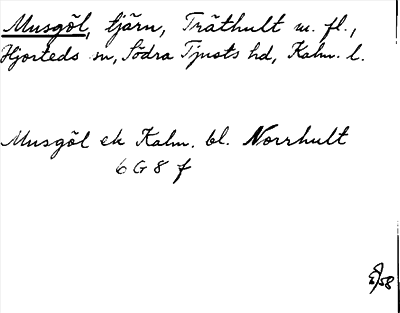 Musgöl, tjärn, Träthult m. fl.,
Hjorteds sn, Södra Tjusts hd, Kalm. l.
Musgöl ek Kalm. bl. Norrhult
6 G 8 f